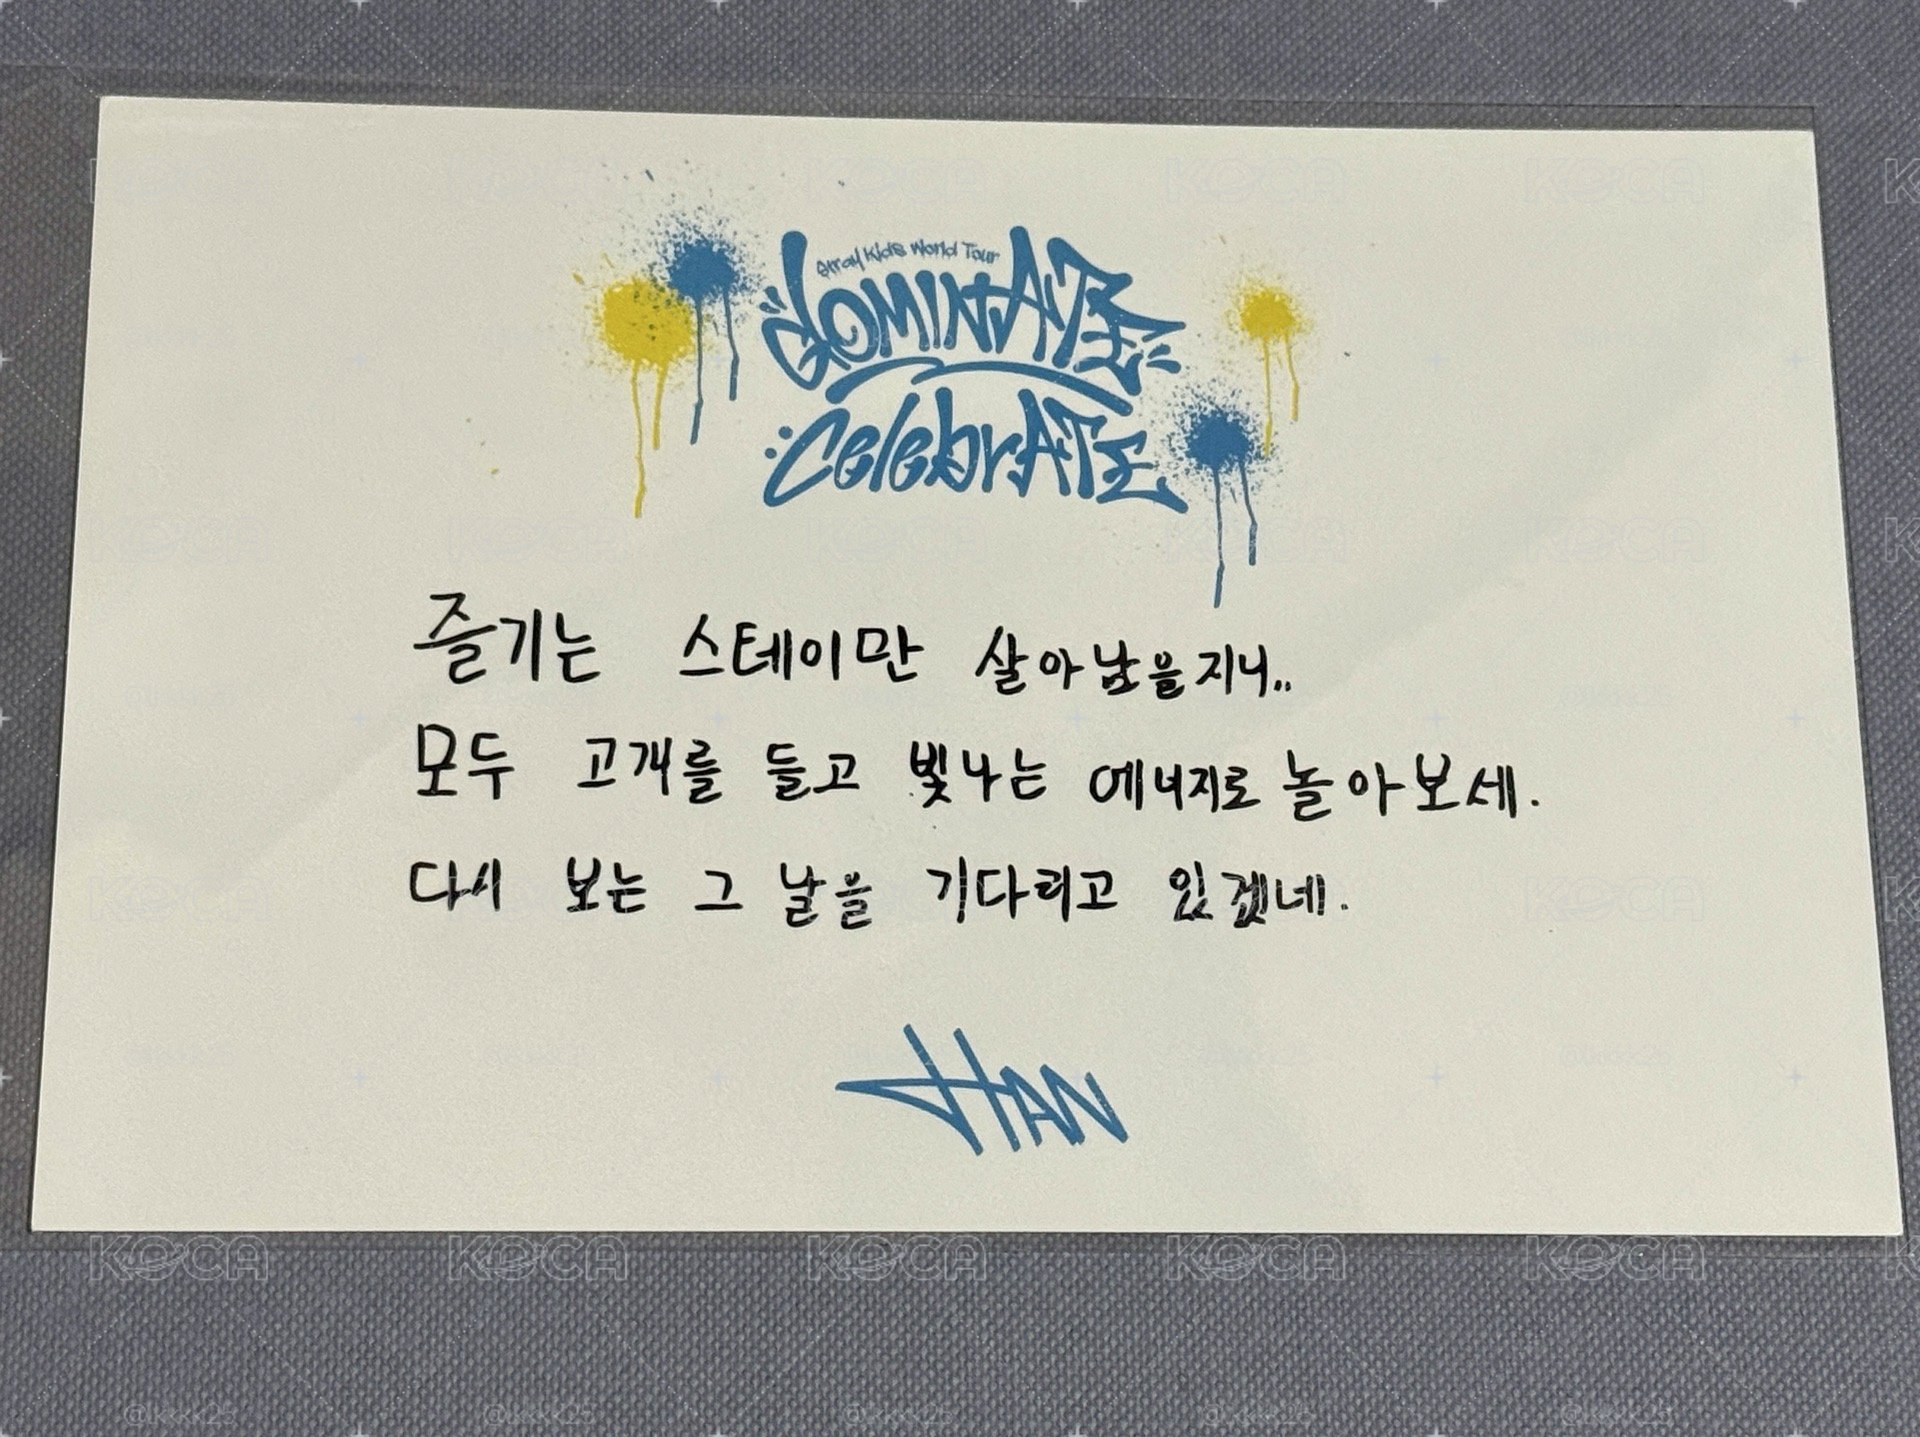 Stray Kids World Tour
dominATE
celebrATE
즐기는 스테이만 살아남을지니..
모두 고개를 들고 빛나는 에너지로 놀아보세.
다시 보는 그 날을 기다리고 있겠네.
HAN
KOCA
@lkkkk25